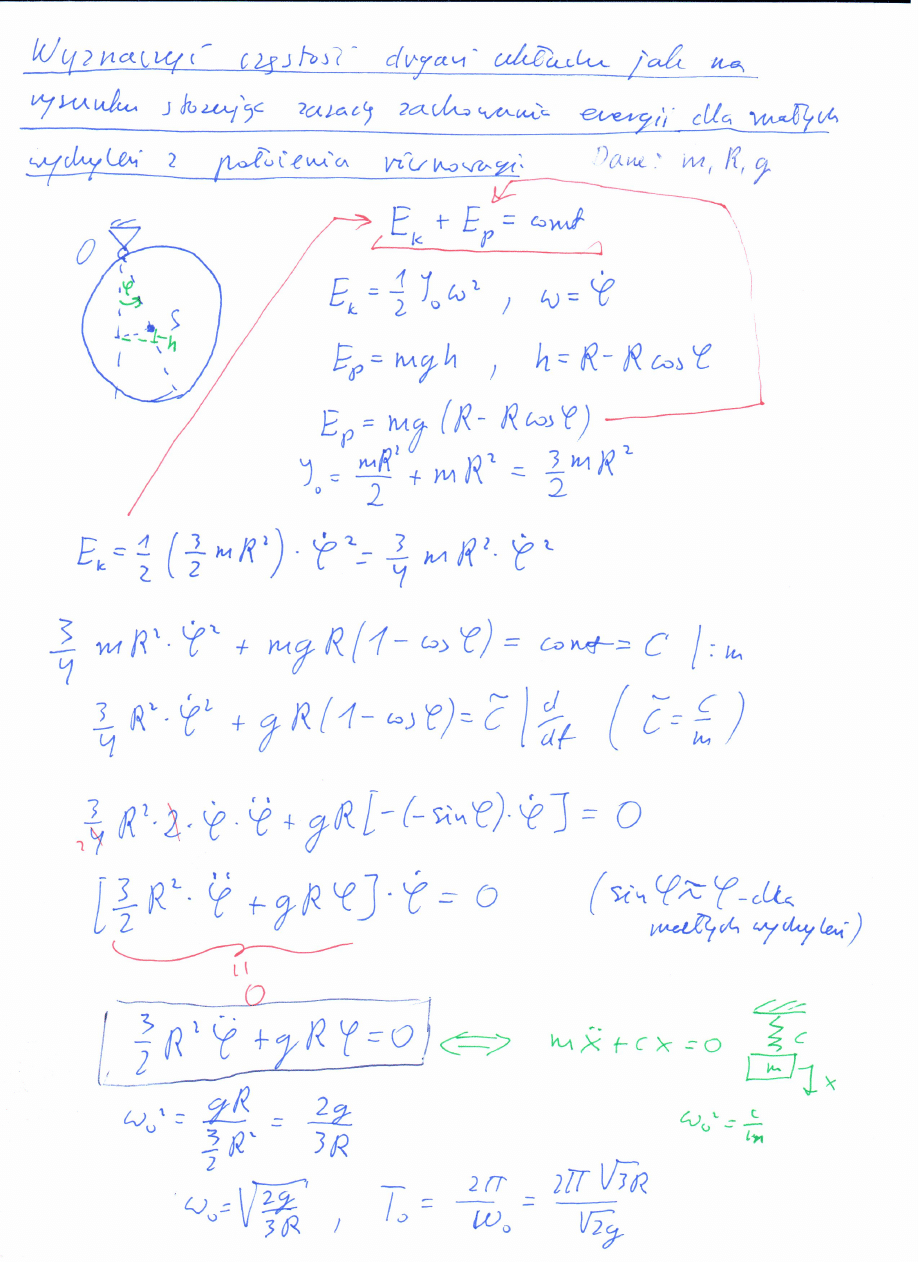 Wyznaczyć częstość drgań układu jak na
rysunku stosując zasadę zachowania energii dla małych
wychyleń z położenia równowagi. Dane: m, R, g
E_k + E_p = const
O
φ
S
h
E_k = 1/2 J_o ω² , ω = φ̇
E_p = mgh , h = R - R cos φ
E_p = mg (R - R cos φ)
J_o = mR²/2 + mR² = 3/2 mR²
E_k = 1/2 (3/2 mR²) · φ̇² = 3/4 mR² · φ̇²
3/4 mR² · φ̇² + mgR(1 - cos φ) = const = C | : m
3/4 R² · φ̇² + gR(1 - cos φ) = C̃ | d/dt ( C̃ = C/m )
3/4 R² · 2 · φ̇ · φ̈ + gR[-(-sin φ) · φ̇] = 0
2
[3/2 R² · φ̈ + gRφ] · φ̇ = 0 (sin φ ≈ φ - dla
małych wychyleń)
=
0
3/2 R² φ̈ + gRφ = 0 ⟺ mẍ + cx = 0
c
m
x
ω_o² = gR / (3/2 R²) = 2g/3R
ω_o² = c/m
ω_o = √(2g/3R) , T_o = 2π/ω_o = 2π√3R / √2g